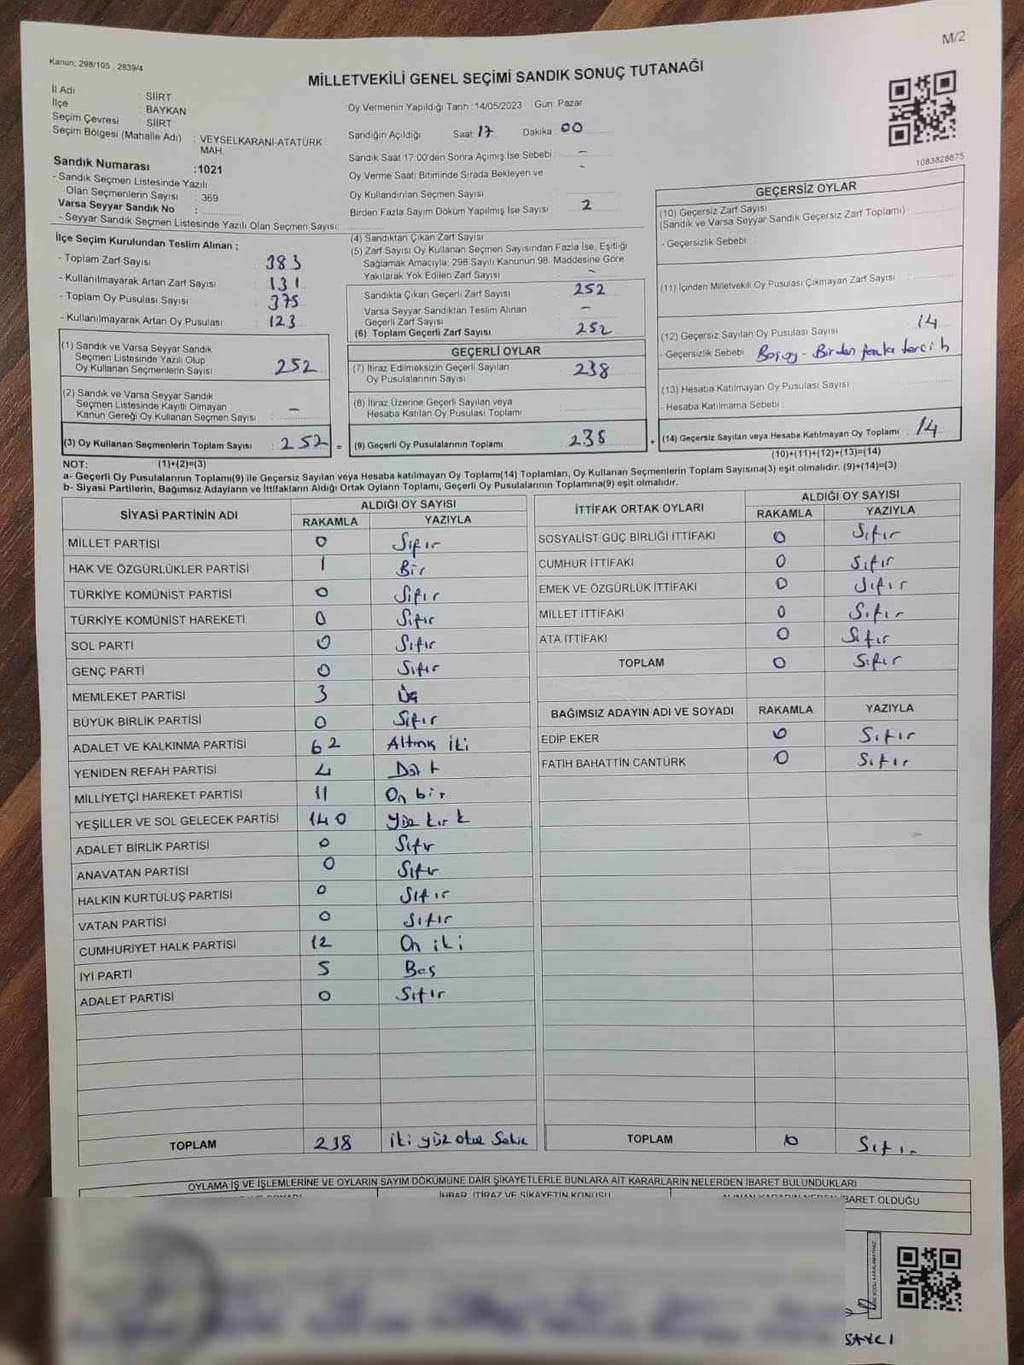 M/2
Kanun: 298/105 , 2839/4
MİLLETVEKİLİ GENEL SEÇİMİ SANDIK SONUÇ TUTANAĞI
İl Adı : SİİRT
İlçe : BAYKAN
Seçim Çevresi : SİİRT
Seçim Bölgesi (Mahalle Adı) : VEYSELKARANİ-ATATÜRK MAH.
Sandık Numarası :1021
- Sandık Seçmen Listesinde Yazılı
Olan Seçmenlerin Sayısı : 369
Varsa Seyyar Sandık No :
- Seyyar Sandık Seçmen Listesinde Yazılı Olan Seçmen Sayısı:
Oy Vermenin Yapıldığı Tarih :14/05/2023 Gün: Pazar
Sandığın Açıldığı Saat: 17 Dakika: 00
Sandık Saat 17:00'den Sonra Açımış İse Sebebi : -
Oy Verme Saati Bitiminde Sırada Bekleyen ve -
Oy Kullandırılan Seçmen Sayısı
Birden Fazla Sayım Döküm Yapılmış İse Sayısı 2
1083828675
İlçe Seçim Kurulundan Teslim Alınan ;
- Toplam Zarf Sayısı 383
- Kullanılmayarak Artan Zarf Sayısı 131
- Toplam Oy Pusulası Sayısı 375
- Kullanılmayarak Artan Oy Pusulası 123
(1) Sandık ve Varsa Seyyar Sandık
Seçmen Listesinde Yazılı Olup
Oy Kullanan Seçmenlerin Sayısı 252
(2) Sandık ve Varsa Seyyar Sandık
Seçmen Listesinde Kayıtlı Olmayan
Kanun Gereği Oy Kullanan Seçmen Sayısı -
(3) Oy Kullanan Seçmenlerin Toplam Sayısı 252 =
(4) Sandıktan Çıkan Zarf Sayısı
(5) Zarf Sayısı Oy Kullanan Seçmen Sayısından Fazla İse, Eşitliği
Sağlamak Amacıyla; 298 Sayılı Kanunun 98. Maddesine Göre
Yakılarak Yok Edilen Zarf Sayısı -
Sandıkta Çıkan Geçerli Zarf Sayısı 252
Varsa Seyyar Sandıktan Teslim Alınan
Geçerli Zarf Sayısı -
(6) Toplam Geçerli Zarf Sayısı 252
GEÇERLİ OYLAR
(7) İtiraz Edilmeksizin Geçerli Sayılan
Oy Pusulalarının Sayısı 238
(8) İtiraz Üzerine Geçerli Sayılan veya
Hesaba Katılan Oy Pusulası Toplamı
(9) Geçerli Oy Pusulalarının Toplamı 238 +
GEÇERSİZ OYLAR
(10) Geçersiz Zarf Sayısı
(Sandık ve Varsa Seyyar Sandık Geçersiz Zarf Toplamı)
- Geçersizlik Sebebi
(11) İçinden Milletvekili Oy Pusulası Çıkmayan Zarf Sayısı
(12) Geçersiz Sayılan Oy Pusulası Sayısı 14
- Geçersizlik Sebebi Boş oy - Birden fazla tercih
(13) Hesaba Katılmayan Oy Pusulası Sayısı
- Hesaba Katılmama Sebebi
(14) Geçersiz Sayılan veya Hesaba Katılmayan Oy Toplamı 14
(10)+(11)+(12)+(13)=(14)
NOT: (1)+(2)=(3)
a- Geçerli Oy Pusulalarının Toplamı(9) ile Geçersiz Sayılan veya Hesaba katılmayan Oy Toplamı(14) Toplamları, Oy Kullanan Seçmenlerin Toplam Sayısına(3) eşit olmalıdır. (9)+(14)=(3)
b- Siyasi Partilerin, Bağımsız Adayların ve İttifakların Aldığı Ortak Oyların Toplamı, Geçerli Oy Pusulalarının Toplamına(9) eşit olmalıdır.
SİYASİ PARTİNİN ADI ALDIĞI OY SAYISI
RAKAMLA YAZIYLA
MİLLET PARTİSİ 0 Sıfır
HAK VE ÖZGÜRLÜKLER PARTİSİ 1 Bir
TÜRKİYE KOMÜNİST PARTİSİ 0 Sıfır
TÜRKİYE KOMÜNİST HAREKETİ 0 Sıfır
SOL PARTİ 0 Sıfır
GENÇ PARTİ 0 Sıfır
MEMLEKET PARTİSİ 3 Üç
BÜYÜK BİRLİK PARTİSİ 0 Sıfır
ADALET VE KALKINMA PARTİSİ 62 Altmış iki
YENİDEN REFAH PARTİSİ 4 Dört
MİLLİYETÇİ HAREKET PARTİSİ 11 On bir
YEŞİLLER VE SOL GELECEK PARTİSİ 140 Yüz kırk
ADALET BİRLİK PARTİSİ 0 Sıfır
ANAVATAN PARTİSİ 0 Sıfır
HALKIN KURTULUŞ PARTİSİ 0 Sıfır
VATAN PARTİSİ 0 Sıfır
CUMHURİYET HALK PARTİSİ 12 On iki
İYİ PARTİ 5 Beş
ADALET PARTİSİ 0 Sıfır
TOPLAM 238 iki yüz otuz Sekiz
İTTİFAK ORTAK OYLARI ALDIĞI OY SAYISI
RAKAMLA YAZIYLA
SOSYALİST GÜÇ BİRLİĞİ İTTİFAKI 0 Sıfır
CUMHUR İTTİFAKI 0 Sıfır
EMEK VE ÖZGÜRLÜK İTTİFAKI 0 Sıfır
MİLLET İTTİFAKI 0 Sıfır
ATA İTTİFAKI 0 Sıfır
TOPLAM 0 Sıfır
BAĞIMSIZ ADAYIN ADI VE SOYADI RAKAMLA YAZIYLA
EDİP EKER 0 Sıfır
FATİH BAHATTİN CANTÜRK 0 Sıfır
TOPLAM 0 Sıfır
OYLAMA İŞ VE İŞLEMLERİNE VE OYLARIN SAYIM DÖKÜMÜNE DAİR ŞİKAYETLERLE BUNLARA AİT KARARLARIN NELERDEN İBARET BULUNDUKLARI
İHBAR, İTİRAZ VE ŞİKAYETİN KONUSU İBARET OLDUĞU